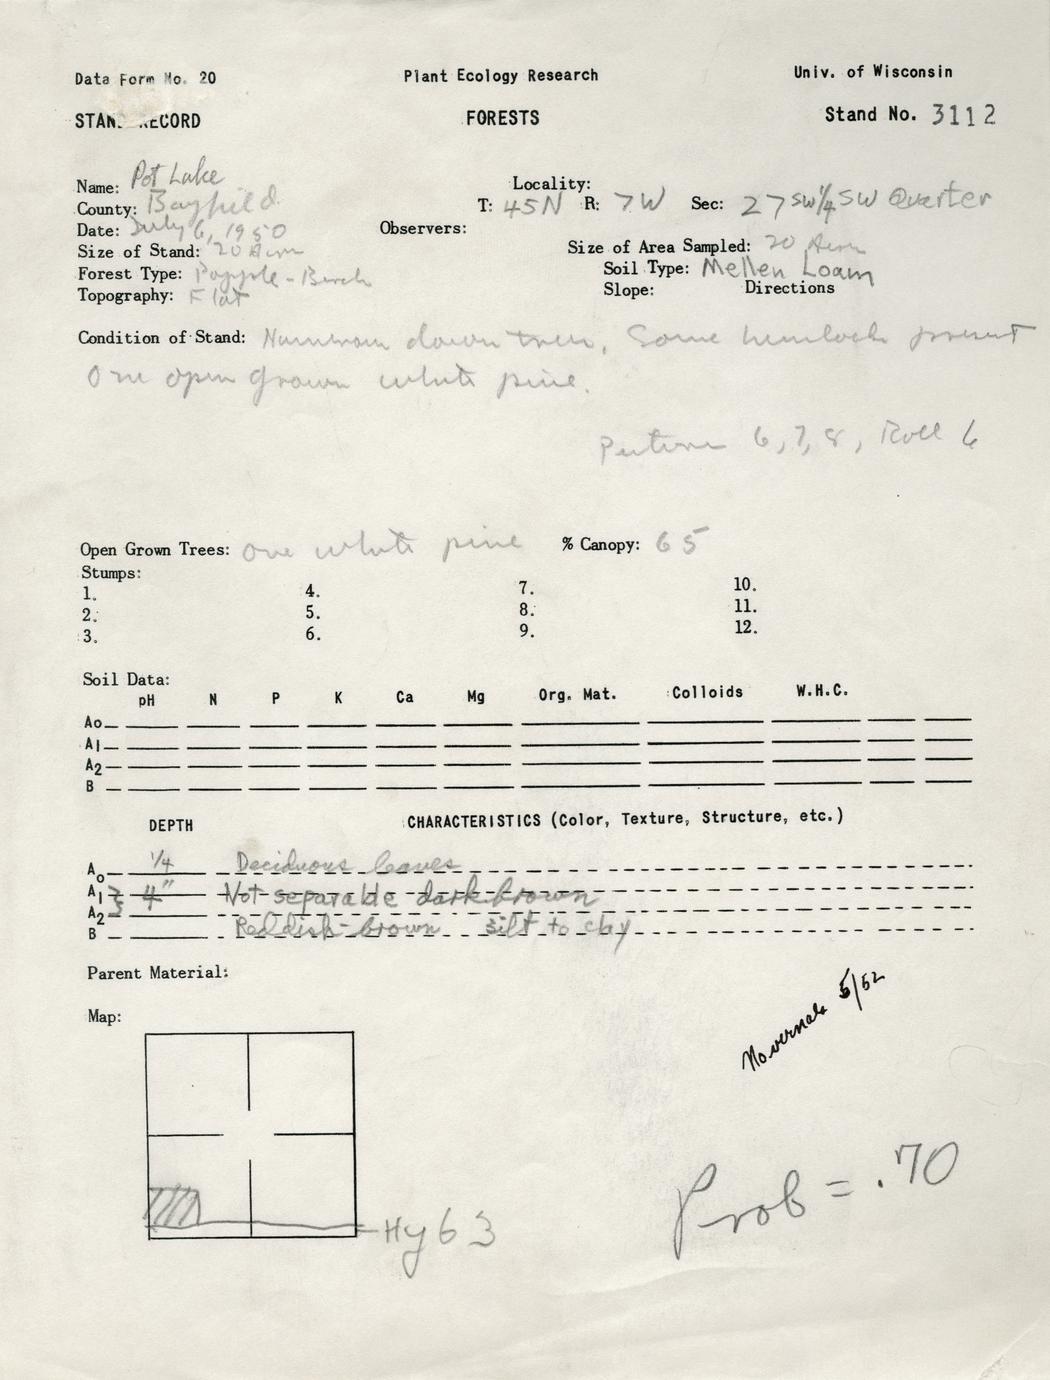 Data Form No. 20 Plant Ecology Research Univ. of Wisconsin
STAND RECORD FORESTS Stand No. 3112
Name: Pot Lake Locality:
County: Bayfield T: 45N R: 7W Sec: 27 SW1/4 SW Quarter
Date: July 6, 1950 Observers:
Size of Stand: 20 Acres Size of Area Sampled: 20 Acres
Forest Type: Popple-Birch Soil Type: Mellen Loam
Topography: Flat Slope: Directions
Condition of Stand: Numerous down trees. Some hemlock present
One open grown white pine.
Pictures 6, 7, 8, Roll 6
Open Grown Trees: one white pine % Canopy: 65
Stumps:
1. 4. 7. 10.
2. 5. 8. 11.
3. 6. 9. 12.
Soil Data:
pH N P K Ca Mg Org. Mat. Colloids W.H.C.
Ao
A1
A2
B
DEPTH CHARACTERISTICS (Color, Texture, Structure, etc.)
Ao 1/4 Deciduous leaves
A1 4" Not separable dark brown
A2
B Reddish-brown silt to clay
Parent Material:
5/52
Map:
Prob = .70
Hy 63